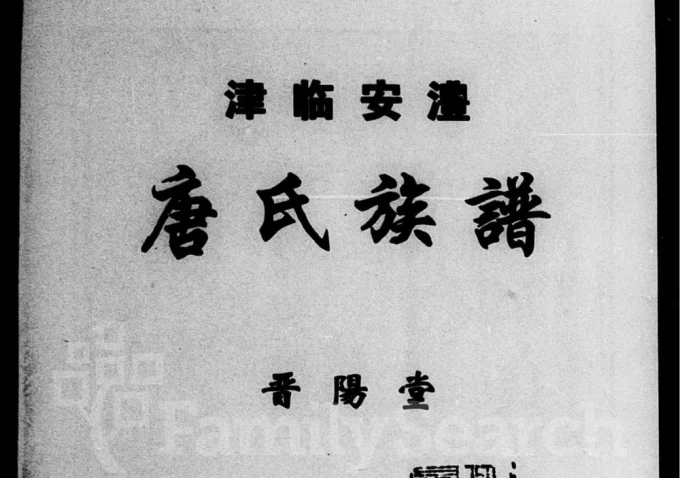 津临安澧
唐氏族譜
晋陽堂
FamilySearch